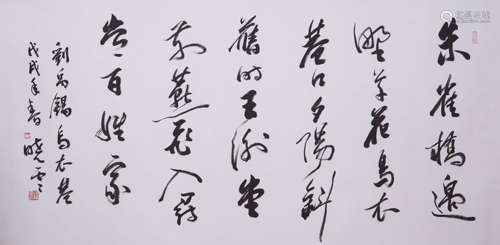 朱雀橋邊
野草花烏衣
巷口夕陽斜
舊時王謝堂
前燕飛入尋
常百姓家
劉禹錫烏衣巷
戊戌年春曉雲